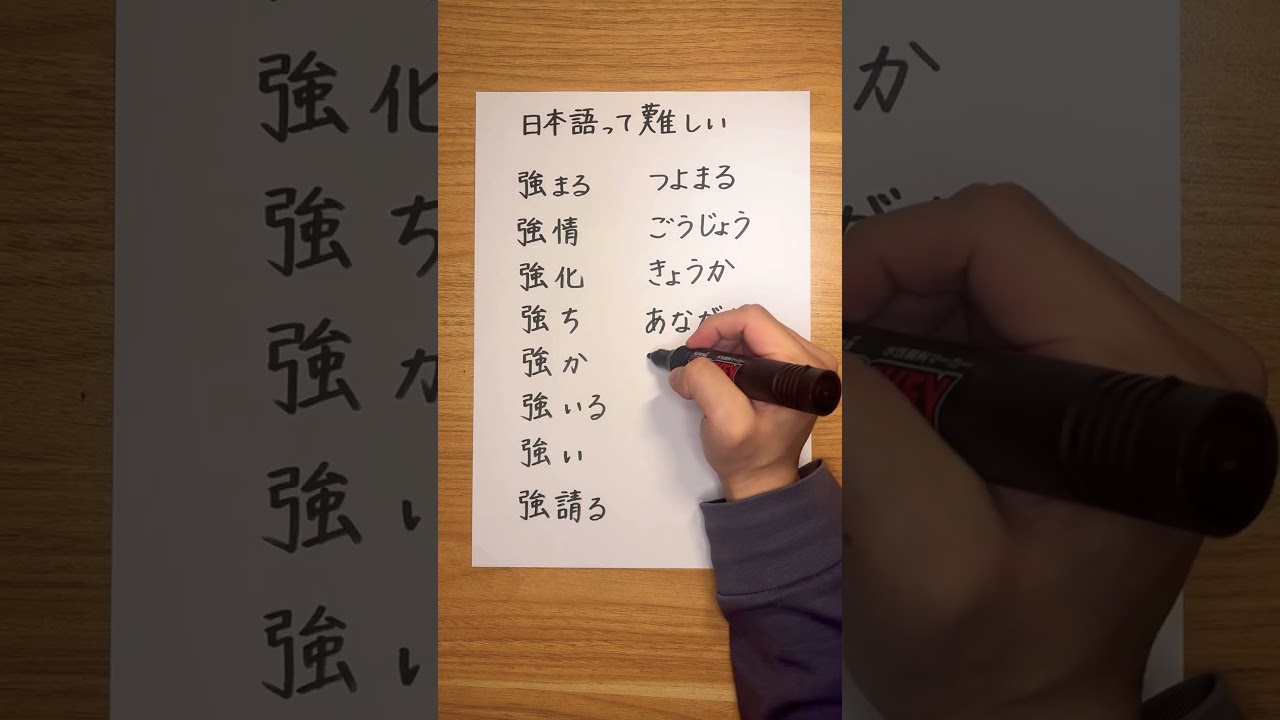 日本語って難しい
強まる つよまる
強情 ごうじょう
強化 きょうか
強ち あなが
強か
強いる
強い
強請る